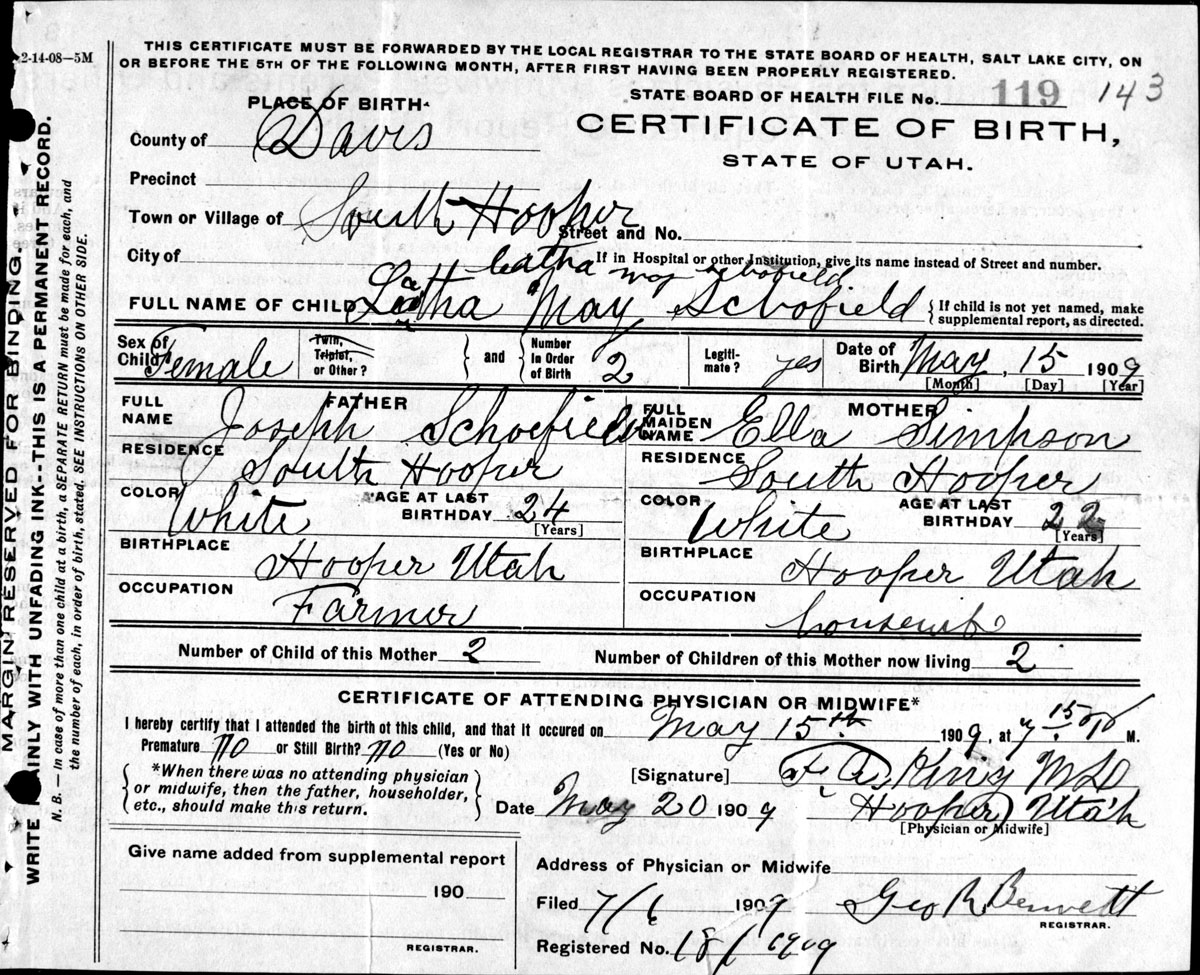 2-14-08—5M
THIS CERTIFICATE MUST BE FORWARDED BY THE LOCAL REGISTRAR TO THE STATE BOARD OF HEALTH, SALT LAKE CITY, ON
OR BEFORE THE 5TH OF THE FOLLOWING MONTH, AFTER FIRST HAVING BEEN PROPERLY REGISTERED.
STATE BOARD OF HEALTH FILE No. 119 143
PLACE OF BIRTH
CERTIFICATE OF BIRTH,
STATE OF UTAH.
County of Davis
Precinct
Town or Village of South Hooper
Street and No.
City of
If in Hospital or other Institution, give its name instead of Street and number.
Leatha May Schofield
FULL NAME OF CHILD Leatha May Schofield
{If child is not yet named, make
supplemental report, as directed.
Sex of Child Female
Twin, Triplst, or Other?
and
Number in Order of Birth 2
Legiti-mate? yes
Date of Birth May 15 1909
[Month] [Day] [Year]
FATHER
FULL NAME Joseph Schoefield
RESIDENCE South Hooper
COLOR White AGE AT LAST BIRTHDAY 24
[Years]
BIRTHPLACE
Hooper Utah
OCCUPATION
Farmer
MOTHER
FULL MAIDEN NAME Ella Simpson
RESIDENCE South Hooper
COLOR White AGE AT LAST BIRTHDAY 22
[Years]
BIRTHPLACE
Hooper Utah
OCCUPATION
housewife
Number of Child of this Mother 2 Number of Children of this Mother now living 2
CERTIFICATE OF ATTENDING PHYSICIAN OR MIDWIFE*
I hereby certify that I attended the birth of this child, and that it occured on May 15th 1909, at 7 15 M.
Premature? no or Still Birth? no (Yes or No)
{*When there was no attending physician
or midwife, then the father, householder,
etc., should make this return.}
[Signature] F. A. King M D
Date May 20 1909 Hooper Utah
[Physician or Midwife]
Give name added from supplemental report
190
REGISTRAR.
Address of Physician or Midwife
Filed 7/6 1909 Geo R Bennett
REGISTRAR.
Registered No. 1909
MARGIN RESERVED FOR BINDING.
WRITE PLAINLY WITH UNFADING INK--THIS IS A PERMANENT RECORD.
N. B.—In case of more than one child at a birth, a SEPARATE RETURN must be made for each, and
the number of each, in order of birth, stated. SEE INSTRUCTIONS ON OTHER SIDE.